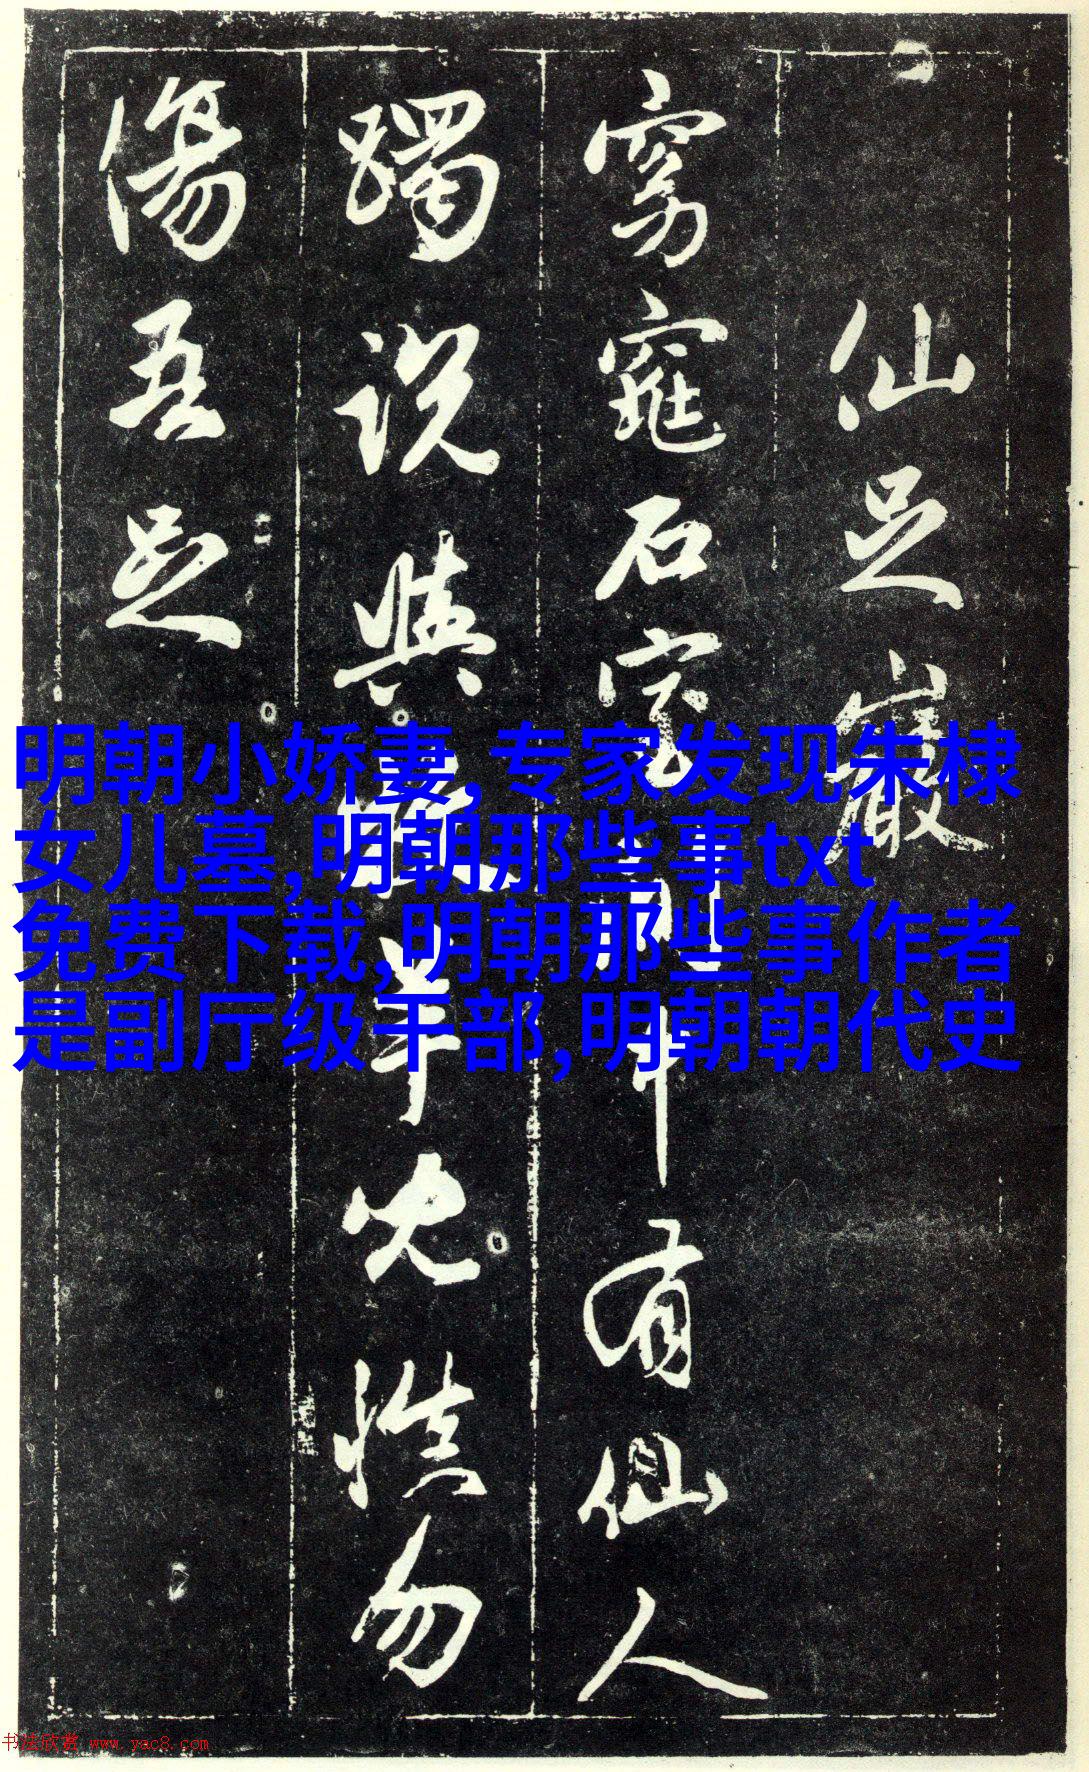 仙足巖
窈窕石室間有仙人
躅説與羊兒慎勿
傷吾足
明朝小娇妻,专家发现朱棣
女儿墓,明朝那些事txt
免费下载,明朝那些事作者
是副厅级干部,明朝朝代史
书法欣赏 www.yac8.com